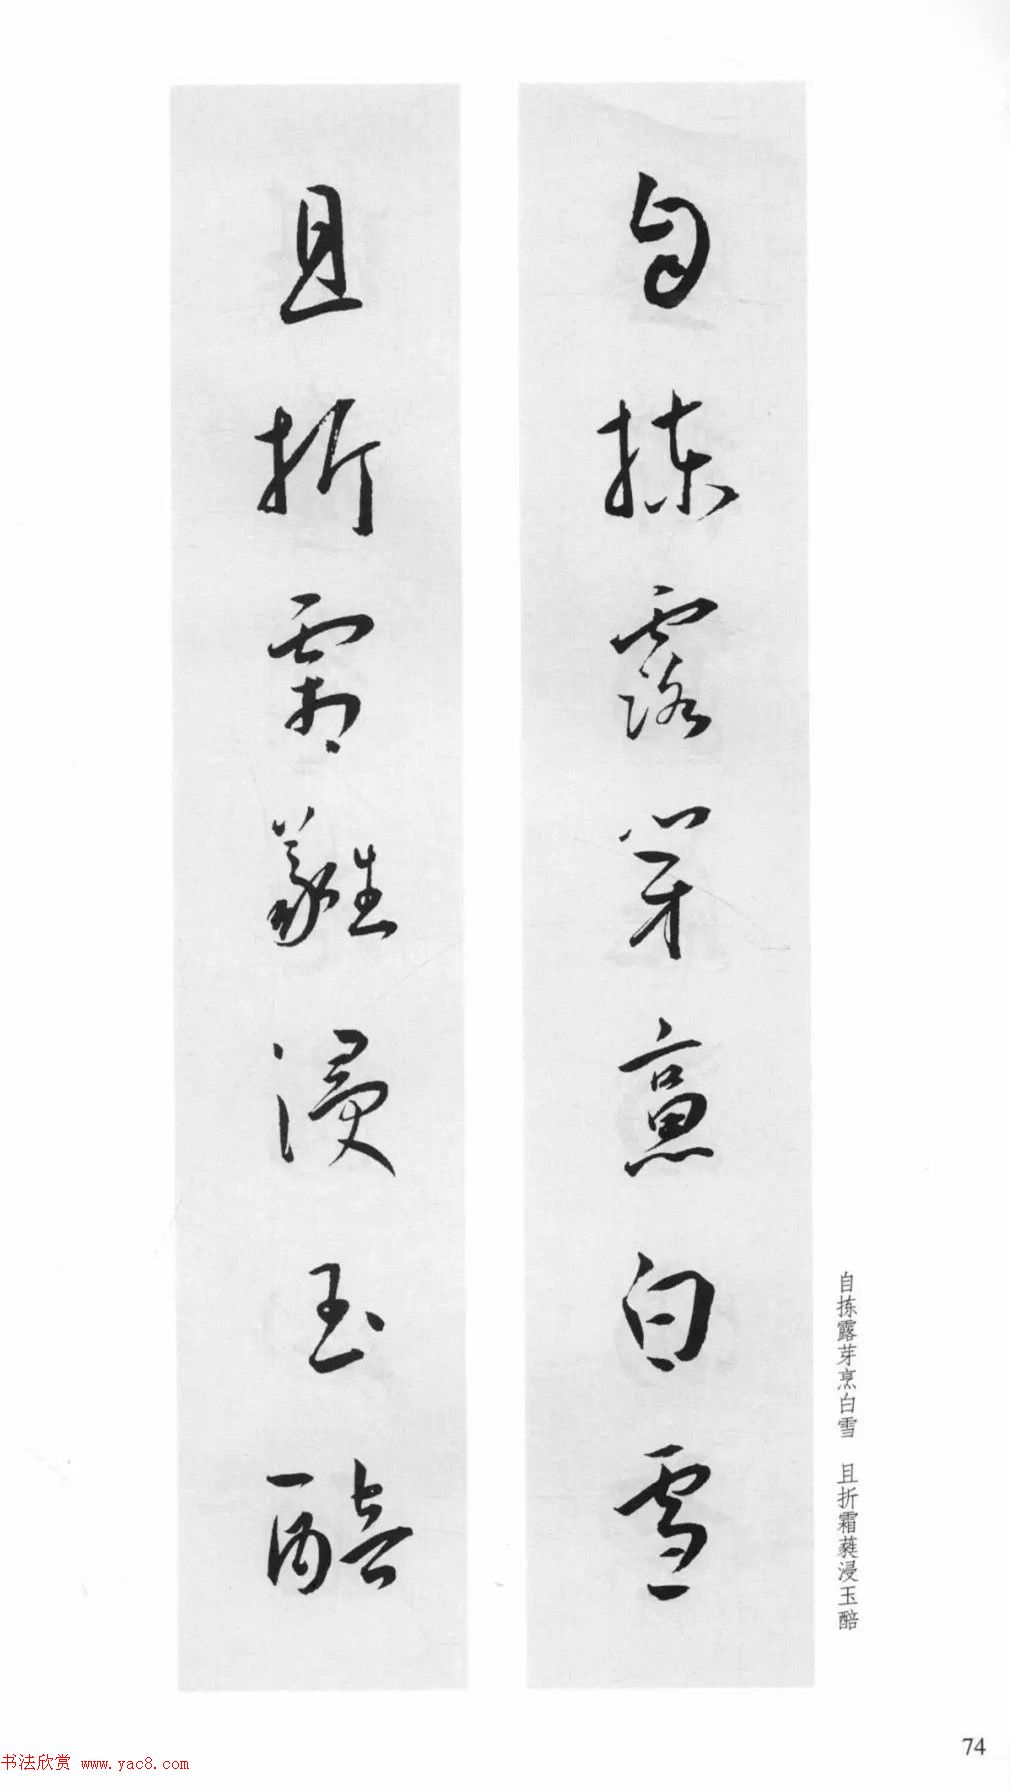 自拣露芽烹白雪
且折霜蕤浸玉醅
自拣露芽烹白雪 且折霜蕤浸玉醅
74
书法欣赏 www.yac8.com